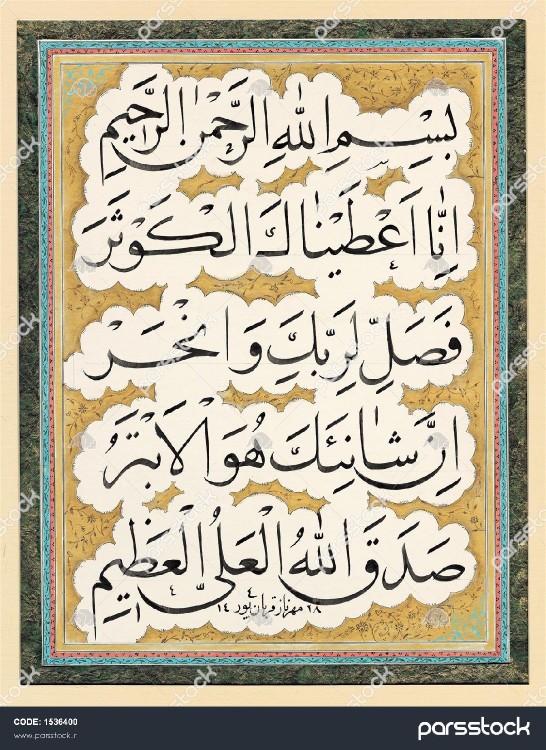 بِسْمِ اللهِ الرَّحْمٰنِ الرَّحِيمِ
اِنَّا اَعْطَيْنَاكَ الْكَوْثَرَ
فَصَلِّ لِرَبِّكَ وَانْحَرْ
اِنَّ شَانِئَكَ هُوَ الْاَبْتَرُ
صَدَقَ اللهُ الْعَلِيُّ الْعَظِيمِ
parsstock
CODE: 1536400
www.parsstock.ir
parsstock